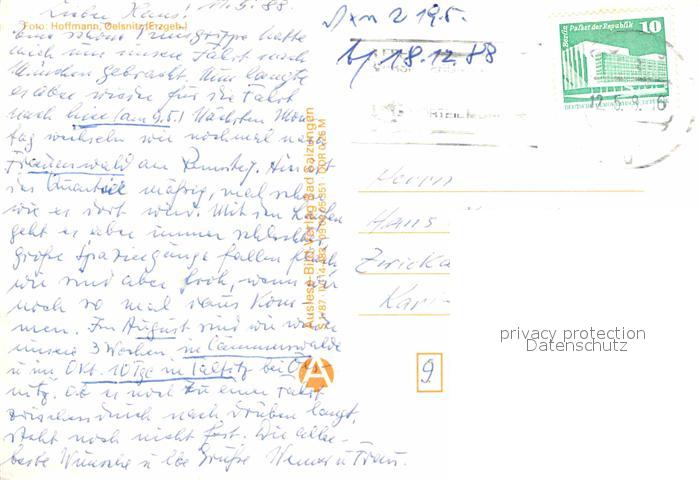 Lieber Hans! 11.5.88.
Foto: Hoffmann, Oelsnitz (Erzgeb.)
eine schöne Reisegruppe hatte
mich um unsere Fahrt nach
München gebracht. Nun langte
es aber wieder für die Fahrt
nach hier (am 9.5.) Nächsten Mon-
tag wechseln wir nochmal nach
Frauenwald am Rennsteig. Hin ist
das Quartier mäßig, mal sehen
wie es dort wird. Mit dem Laufen
geht es aber immer schlechter,
große Spaziergänge fallen flach
wir sind aber froh, wenn wir
noch so mal raus kom-
men. Im August sind wir wieder
unsere 3 Wochen in Cämmerswalde
u. im Okt. 10 Tge in Taltitz bei Oels-
nitz. Ob es noch zu einer Fahrt
zwischendurch nach drüben langt,
steht noch nicht fest. Die aller-
beste Wünsche u. lbe Grüße Werner u. Frau.
Auslese-Bild-Verlag Bad Salzungen
2 19.5.
18.12.88
Berlin Palast der Republik
10
DEUTSCHE DEMOKRATISCHE REPUBLIK
12.5.8
Herrn
Hans
Zwicka
Karl
9
A
privacy protection
Datenschutz